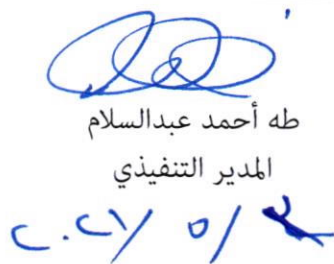 طه أحمد عبدالسلام
المدير التنفيذي
٢٠٢٦/ ٥/